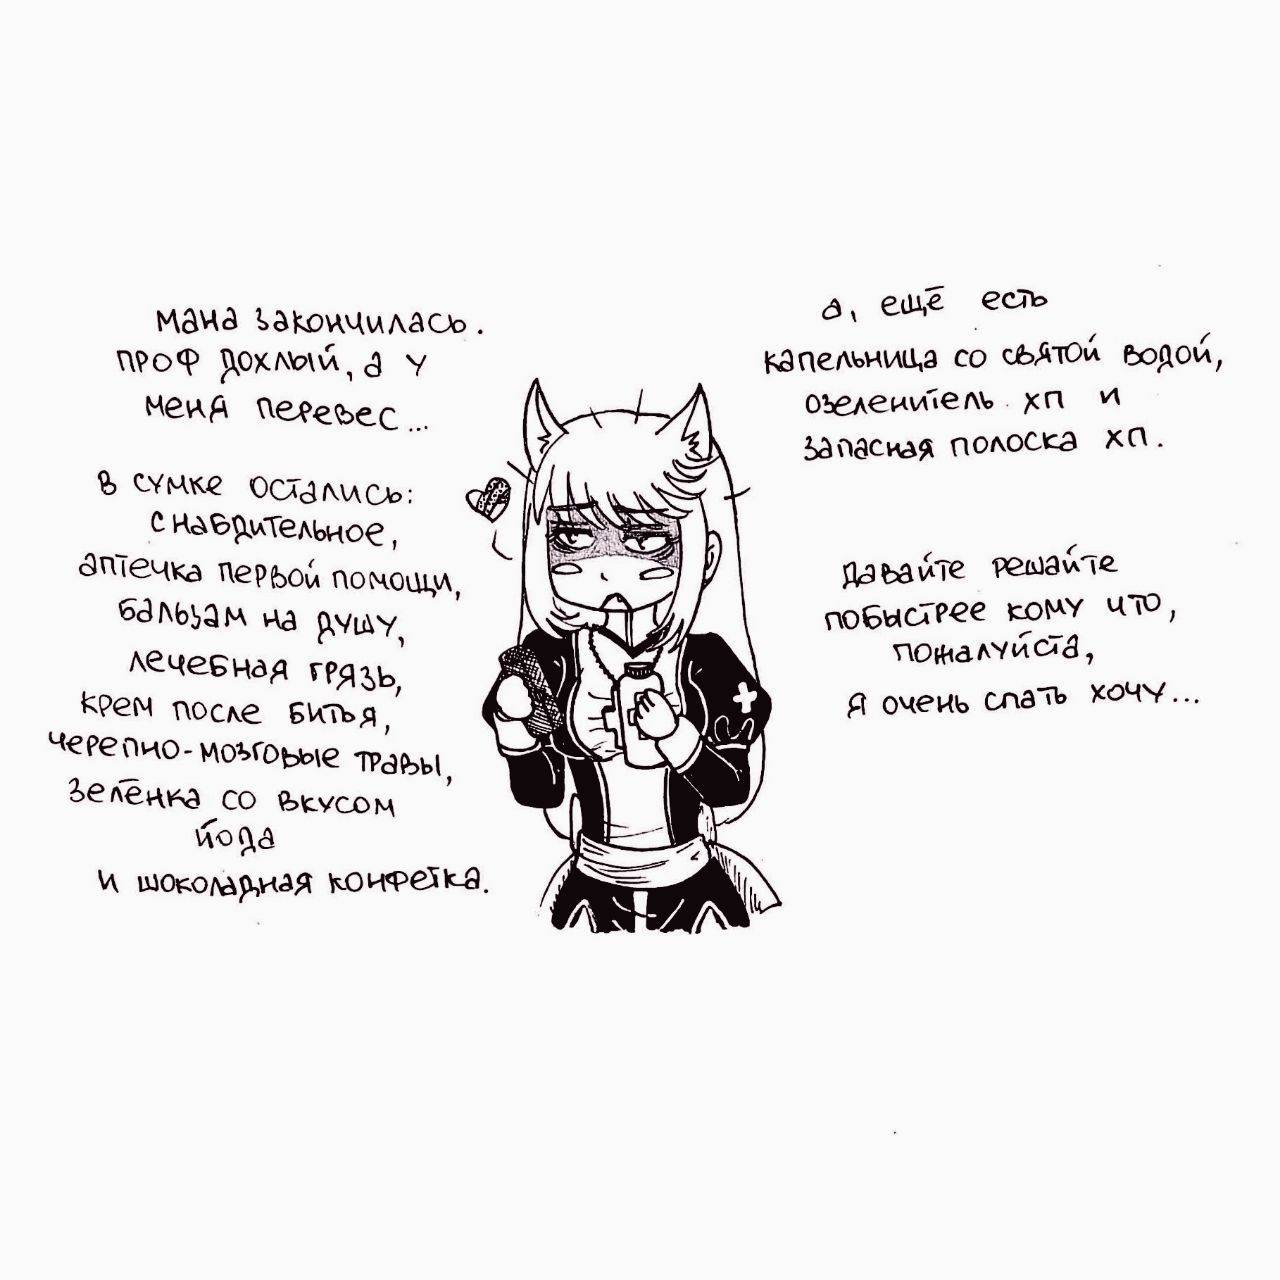 мана закончилась.
проф дохлый, а у
меня перевес...
в сумке остались:
снабдительное,
аптечка первой помощи,
бальзам на душу,
лечебная грязь,
крем после битья,
черепно-мозговые травы,
зелёнка со вкусом
йода
и шоколадная конфетка.
а, ещё есть
капельница со святой водой,
озеленитель хп и
запасная полоска хп.
давайте решайте
побыстрее кому что,
пожалуйста,
я очень спать хочу...